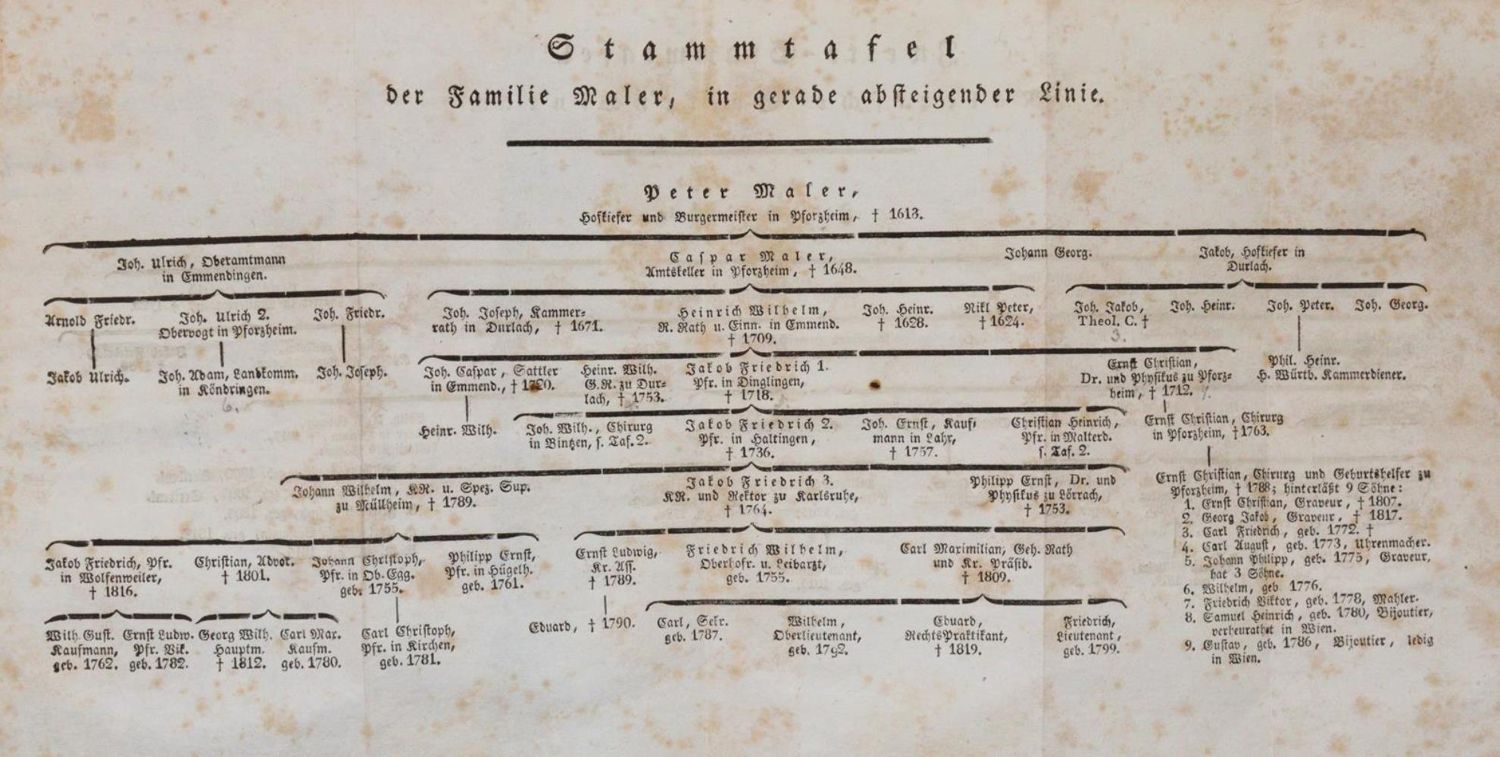 Stammtafel
der Familie Maler, in gerade absteigender Linie.
Peter Maler,
Hofkiefer und Burgermeister in Pforzheim, † 1613.
Joh. Ulrich, Oberamtmann
in Emmendingen.
Caspar Maler,
Amtskeller in Pforzheim, † 1648.
Johann Georg.
Jakob, Hofkiefer in
Durlach.
Arnold Friedr.
Joh. Ulrich 2.
Obervogt in Pforzheim.
Joh. Friedr.
Joh. Joseph, Kammer-
rath in Durlach, † 1671.
Heinrich Wilhelm,
R. Rath u. Einn. in Emmend.
† 1709.
Joh. Heinr.
† 1628.
Nikl Peter,
† 1624.
Joh. Jakob,
Theol. C. †
3.
Joh. Heinr.
Joh. Peter.
Joh. Georg.
Jakob Ulrich.
Joh. Adam, Landkomm.
in Köndringen.
6.
Joh. Joseph.
Joh. Caspar, Sattler
in Emmend., †
Heinr. Wilh.
G.R. zu Dur-
lach, † 1753.
Jakob Friedrich 1.
Pfr. in Dinglingen,
† 1718.
Ernst Christian,
Dr. und Physikus zu Pforz-
heim, † 1712.
Phil. Heinr.
H. Württb. Kammerdiener.
Heinr. Wilh.
Joh. Wilh., Chirurg
in Bintzen, s. Taf. 2.
Jakob Friedrich 2.
Pfr. in Haltingen,
† 1736.
Joh. Ernst, Kauf-
mann in Lahr,
† 1757.
Christian Heinrich,
Pfr. in Malterd.
s. Taf. 2.
Ernst Christian, Chirurg
in Pforzheim, † 1763.
Johann Wilhelm, KR. u. Spez. Sup.
zu Müllheim, † 1789.
Jakob Friedrich 3.
KR. und Rektor zu Karlsruhe,
† 1764.
Philipp Ernst, Dr. und
Physikus zu Lörrach,
† 1753.
Ernst Christian, Chirurg und Geburtshelfer zu
Pforzheim, † 1788; hinterläßt 9 Söhne:
1. Ernst Christian, Graveur, † 1807.
2. Georg Jakob, Graveur, † 1817.
3. Carl Friedrich, geb. 1772. †
4. Carl August, geb. 1773, Uhrenmacher.
5. Johann Philipp, geb. 1775, Graveur,
hat 3 Söhne.
6. Wilhelm, geb. 1776.
7. Friedrich Viktor, geb. 1778, Mahler.
8. Samuel Heinrich, geb. 1780, Bijoutier,
verheurathet in Wien.
9. Gustav, geb. 1786, Bijoutier, ledig
in Wien.
Jakob Friedrich, Pfr.
in Wolfenweiler,
† 1816.
Christian, Advok.
† 1801.
Johann Christoph,
Pfr. in Ob. Egg.
geb. 1755.
Philipp Ernst,
Pfr. in Hügelh.
geb. 1761.
Ernst Ludwig,
Kr. Ass.
† 1789.
Friedrich Wilhelm,
Oberhofr. u. Leibarzt,
geb. 1755.
Carl Maximilian, Geh. Rath
und Kr. Präsid.
† 1809.
Wilh. Gust.
Kaufmann,
geb. 1762.
Ernst Ludw.
Pfr. Vik.
geb. 1782.
Georg Wilh.
Hauptm.
† 1812.
Carl Max.
Kaufm.
geb. 1780.
Carl Christoph,
Pfr. in Kirchen,
geb. 1781.
Eduard, † 1790.
Carl, Sekr.
geb. 1787.
Wilhelm,
Oberlieutenant,
geb. 1792.
Eduard,
RechtsPraktikant,
† 1819.
Friedrich,
Lieutenant,
geb. 1799.